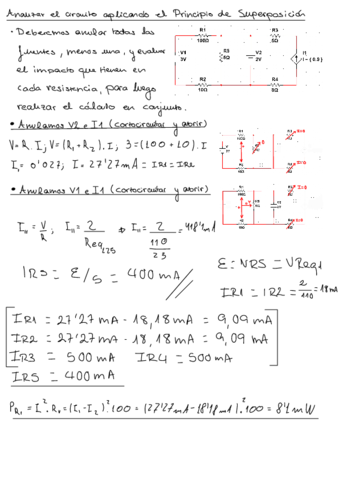 Analizar el circuito aplicando el Principio de Superposición
• Deberemos anular todas las
fuentes, menos una, y evaluar
el impacto que tienen en
cada resistencia, para luego
realizar el cálculo en conjunto.
R1
100Ω
R3
5Ω
V1
3V
R5
5Ω
V2
2V
I1
R2
10Ω
R4
5Ω
• Anulamos V2 e I1 (cortocircuitar y abrir)
V=R.I; V=(R1+R2).I; 3=(100+10).I
I1=0'027; I=27'27mA=IR1=IR2
• Anulamos V1 e I1 (cortocircuitar y abrir)
I11=V/R; I11=2/Req125 → I11=2/(110/23)=418'1mA
IR5 = 2/5 = 400 mA
E=VR5=VReq1
IR1 = IR2 = 2/110 = 18mA
IR1 = 27'27 mA - 18,18 mA = 9,09 mA
IR2 = 27'27 mA - 18,18 mA = 9,09 mA
IR3 = 500 mA IR4 = 500 mA
IR5 = 400 mA
PR1 = I².R1=(I1-I2)².100=(27'27mA-18'18mA)².100=8'1mW